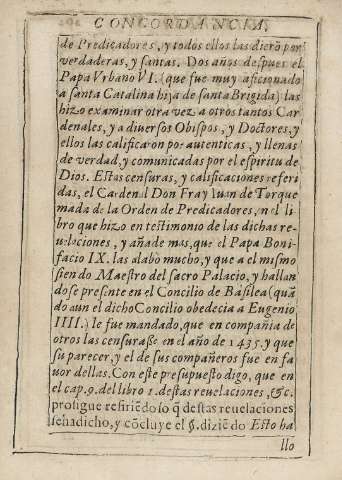 CONCORDANCIA,
de Predicadores, y todos ellos las dierõ por
verdaderas, y santas. Dos años despues el
Papa Vrbano VI. (que fue muy aficionado
a santa Catalina hija de santa Brigida) las
hizo examinar otra vez a otros tantos Car
denales, y a diuersos Obispos, y Doctores, y
ellos las calificaron por autenticas, y llenas
de verdad, y comunicadas por el espiritu de
Dios. Estas censuras, y calificaciones referi
das, el Cardenal Don Fray Iuan de Torque
mada de la Orden de Predicadores, en el li
bro que hizo en testimonio de las dichas re-
uelaciones, y añade mas, que el Papa Boni-
facio IX. las alabò mucho, y que a el mismo
siendo Maestro del sacro Palacio, y hallan
dose presente en el Concilio de Basilea (quã
do aun el dicho Concilio obedecia a Eugenio
IIII.) le fue mandado, que en compañia de
otros las censurasse en el año de 1435. y que
su parecer, y el de sus compañeros fue en fa
uor dellas. Con este presupuesto digo, que en
el cap. 9. del libro 1. destas reuelaciones, &c.
prosigue refiriẽdo lo q̃ destas reuelaciones
se ha dicho, y cõcluye el §. diziẽdo Esto ha
llo